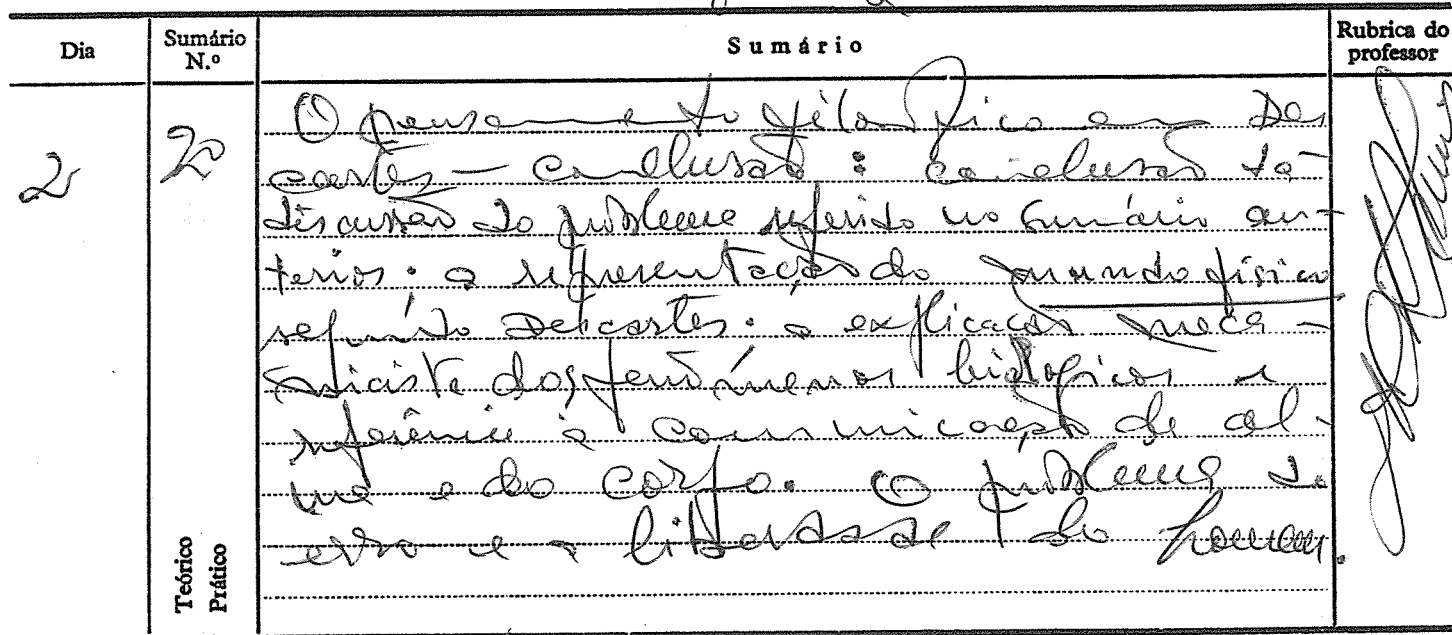 Dia
Sumário N.º
Sumário
Rubrica do professor
2
20
O pensamento filosófico em Des
cartes – conclusão: conclusão da
discussão do problema referido no sumário an-
terior: a representação do mundo físico
segundo Descartes: a explicação meca-
nicista dos fenómenos biológicos e
referência à comunicação de al-
ma e do corpo. O problema do
erro e a liberdade do homem.
Teórico
Prático